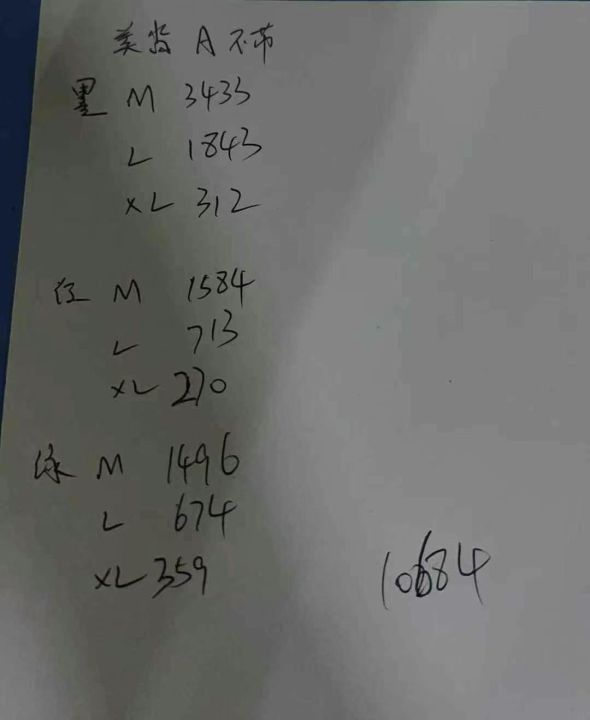 美当 A 不带
黑 M 3433
L 1843
XL 312
红 M 1584
L 713
XL 270
绿 M 1496
L 674
XL 359
10684